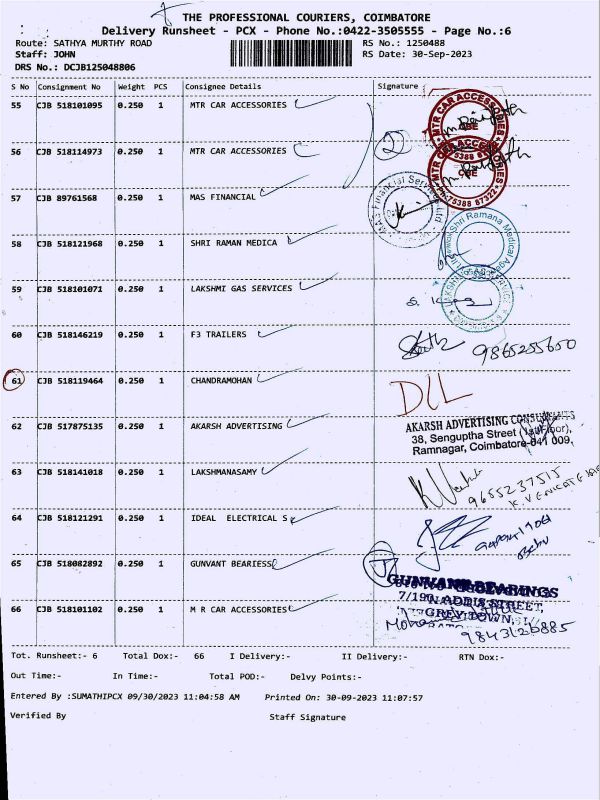 THE PROFESSIONAL COURIERS, COIMBATORE
Delivery Runsheet - PCX - Phone No.:0422-3505555 - Page No.:6
Route: SATHYA MURTHY ROAD RS No.: 1250488
Staff: JOHN RS Date: 30-Sep-2023
DRS No.: DCJB125048806
S No Consignment No Weight PCS Consignee Details Signature
55 CJB 518101095 0.250 1 MTR CAR ACCESSORIES
MTR CAR ACCESSORIES
CBE
56 CJB 518114973 0.250 1 MTR CAR ACCESSORIES
MTR CAR ACCESSORIES
CBE
75388 67322
57 CJB 89761568 0.250 1 MAS FINANCIAL
MAS Financial Services Ltd
58 CJB 518121968 0.250 1 SHRI RAMAN MEDICA
Shri Ramana Medical
59 CJB 518101071 0.250 1 LAKSHMI GAS SERVICES
LAKSHMI GAS SERVICE
60 CJB 518146219 0.250 1 F3 TRAILERS
9865255600
61 CJB 518119464 0.250 1 CHANDRAMOHAN
D/L
62 CJB 517875135 0.250 1 AKARSH ADVERTISING
AKARSH ADVERTISING CONSULTANTS
38, Senguptha Street (1st Floor),
Ramnagar, Coimbatore-641 009.
63 CJB 518141018 0.250 1 LAKSHMANASAMY
9655237515
64 CJB 518121291 0.250 1 IDEAL ELECTRICAL S
65 CJB 518082892 0.250 1 GUNVANT BEARIESS
GUNVANT BEARINGS
7/190, ADDIS STREET,
GREY TOWN,
66 CJB 518101102 0.250 1 M R CAR ACCESSORIES
9843120885
Tot. Runsheet:- 6 Total Dox:- 66 I Delivery:- II Delivery:- RTN Dox:-
Out Time:- In Time:- Total POD:- Delvy Points:-
Entered By :SUMATHIPCX 09/30/2023 11:04:58 AM Printed On: 30-09-2023 11:07:57
Verified By Staff Signature